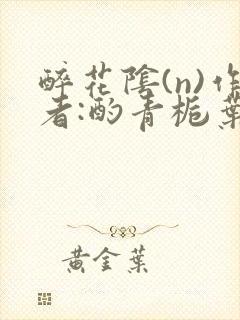 醉花陰(n)作
者:酌青栀葉
黄金葉